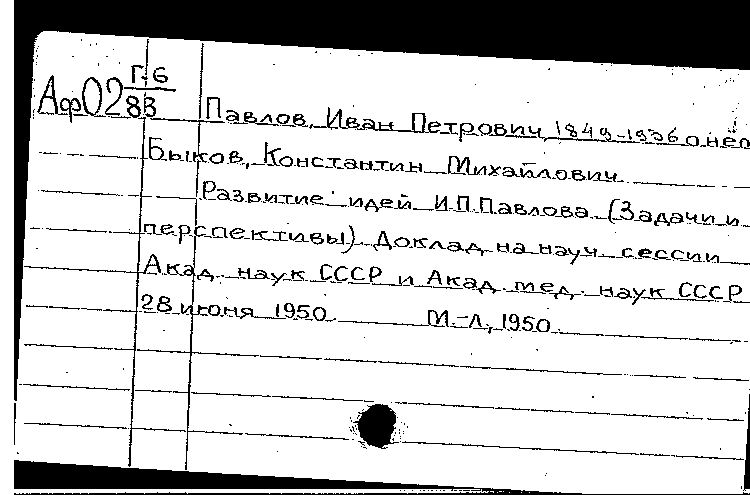 Аф02 Г.6
83
Павлов, Иван Петрович, 1849-1936 о нём
Быков, Константин Михайлович
Развитие идей И.П.Павлова. (Задачи и
перспективы). Доклад на науч. сессии
Акад. наук СССР и Акад. мед. наук СССР
28 июня 1950. М.-Л., 1950.